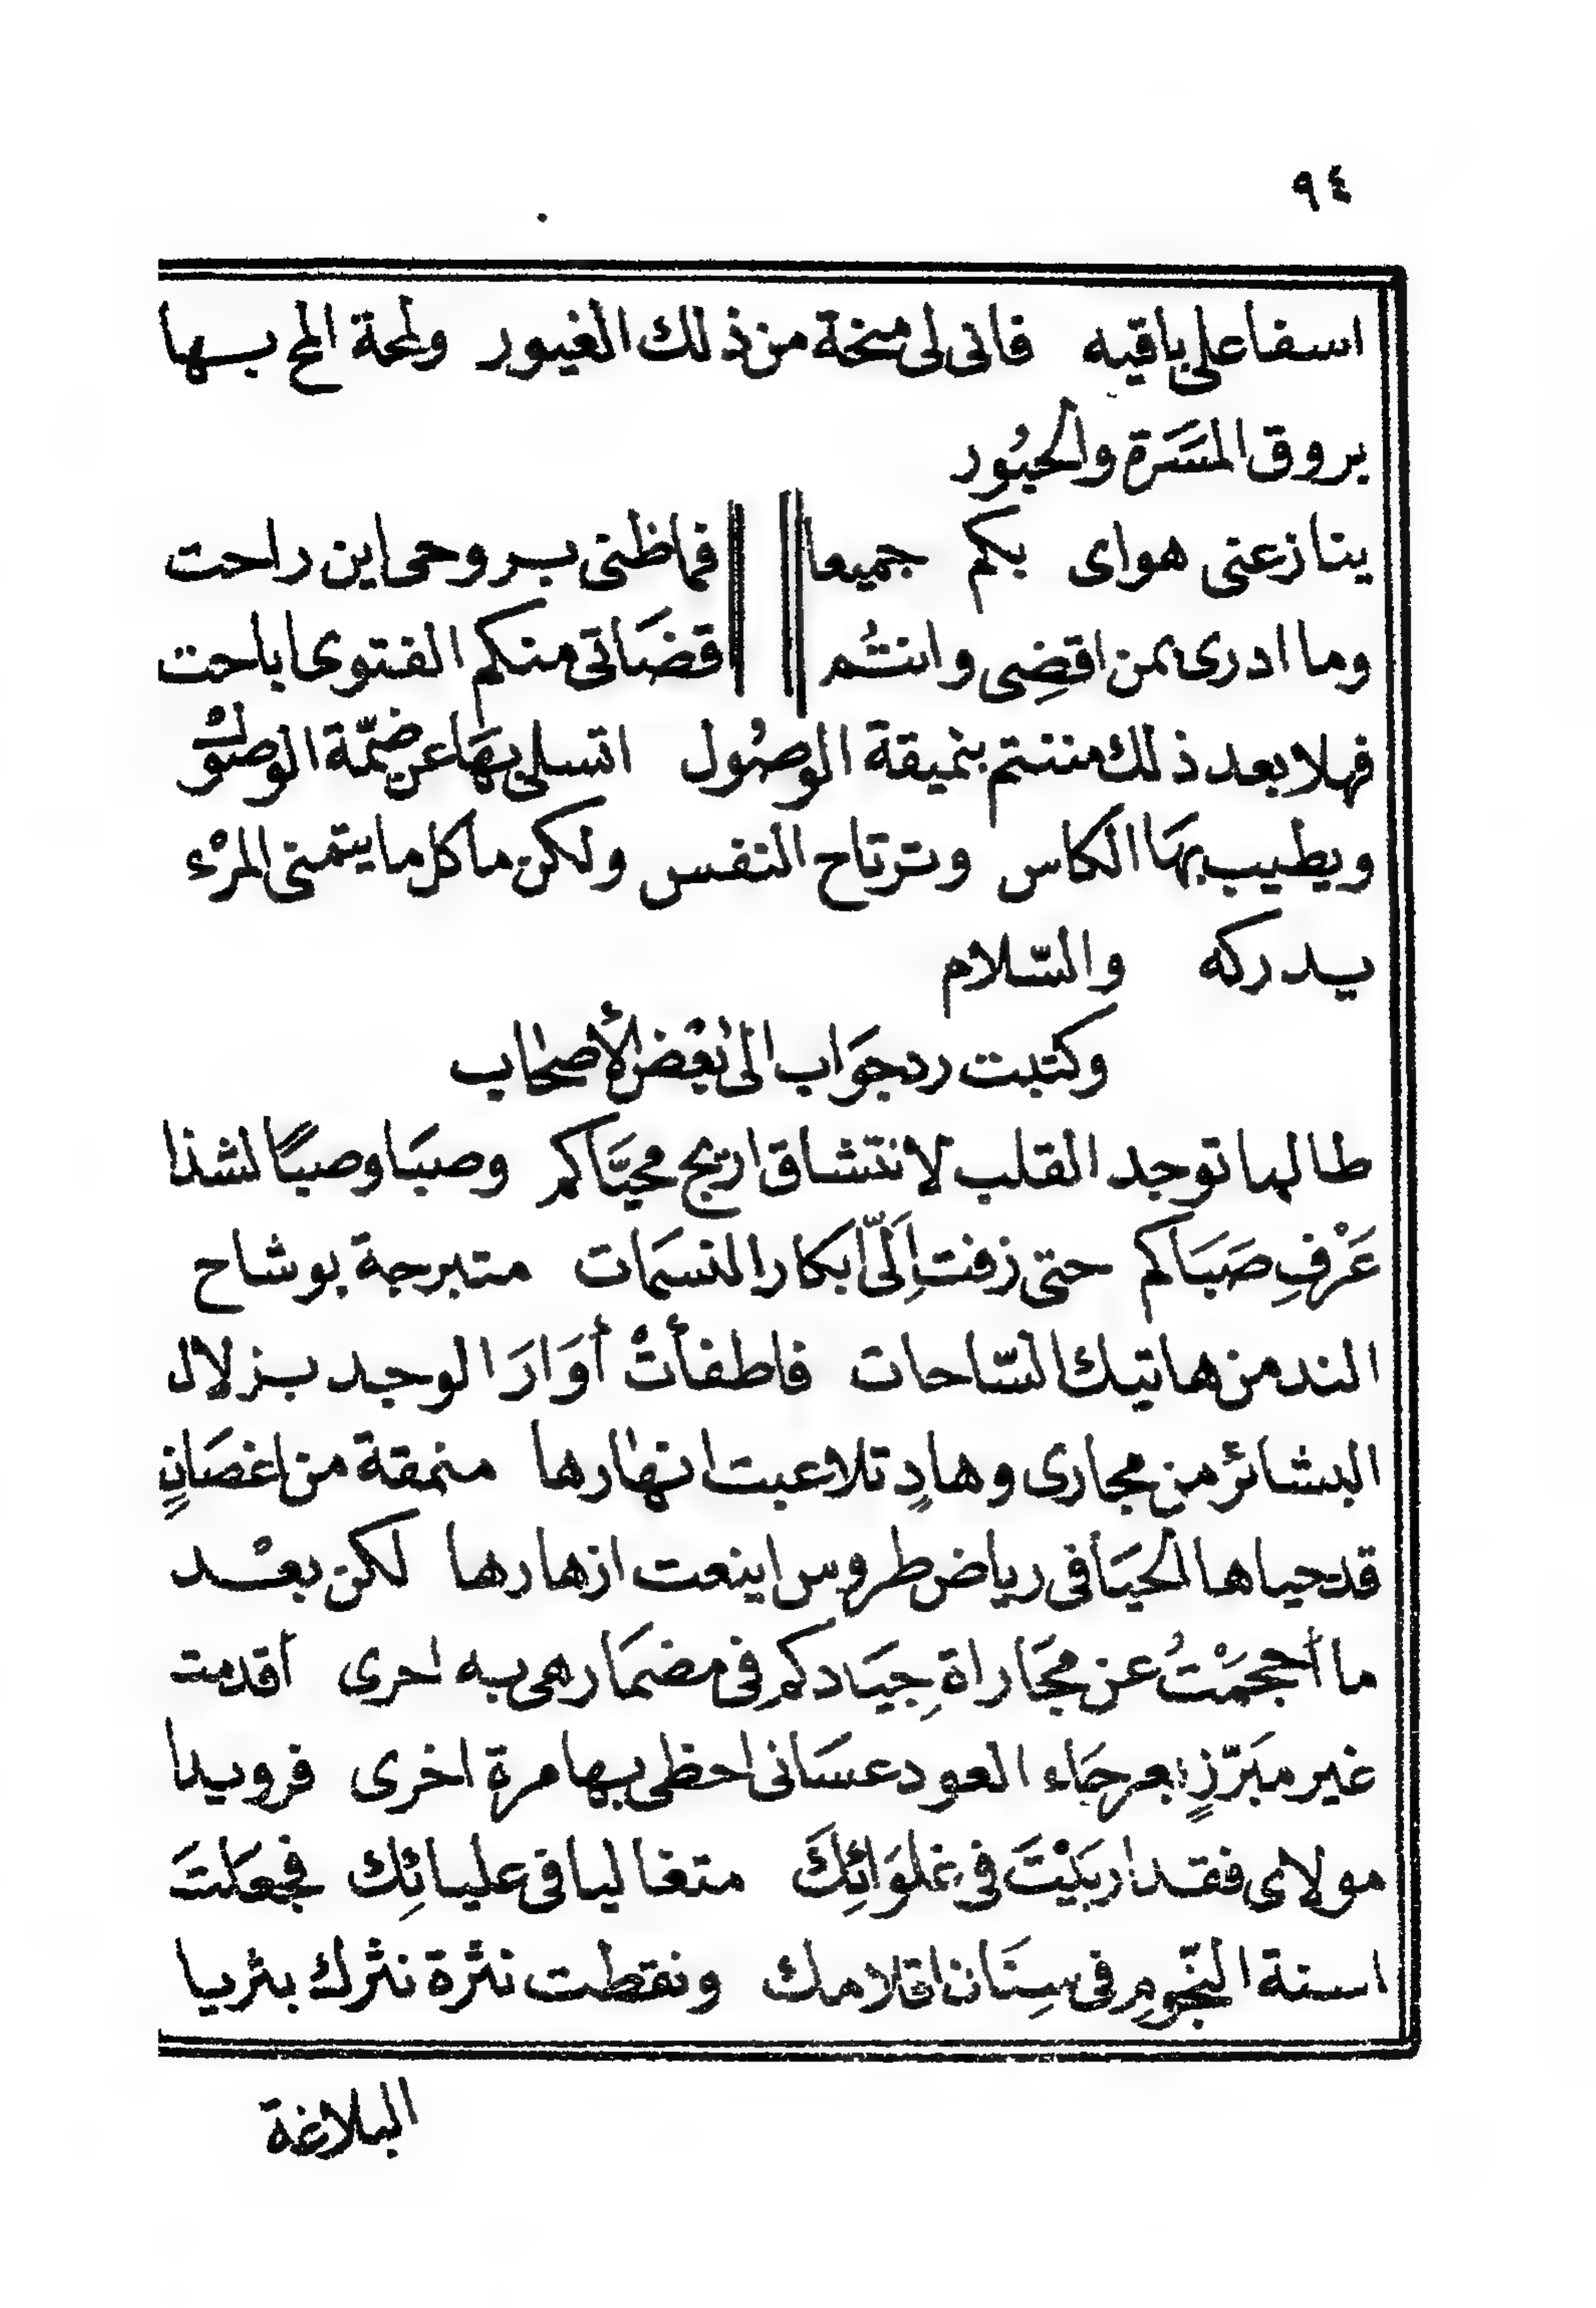 ٩٤
اسفا على باقيه فانى لى منحة من ذلك الغيور ولمحة المح بها
بروق المسَرة والحبُور
ينازعنى هواى بكم جميعا فماظنى بروحى اين راحت
وما ادرى بمن اقضِى وانتُم اقضَاتى منكم الفتوى اباحت
فهلا بعد ذلك مننتم بنميقة الوصُول اتسلى بهَا عن ضمّة الوصوْل
ويطيب بهَا الكاس وترتاح النفس ولكن ما كل ما يتمنى المرْء
يدركه والسّلام
وكتبت رد جوَاب الى بعْض الأصحاب
طالما توجد القلب لانتشاق اريج محيَّاكم وصبَا وصبًا لشذا
عَرْفِ صَبَاكم حتى زفت اِلَىّ ابكار النسمَات متبرجة بوشاح
الند من هاتيك السّاحات فاطفأتْ أوَارَ الوجد بزلال
البشائر من مجارى وهادٍ تلاعبت انهارها منمقة من اغصَانٍ
قد حياها الحيَا فى رياض طروس اينعت ازهارها لكن بعْد
ما أحجمْتُ عن مجَاراةِ جيَادكم فى مضمَار هى به احرى أقدمت
غير مبَرّزٍ بعرجَاء العود عسَانى احظى بها مرة اخرى فرويدا
مولاى فقد اربَيْتَ فى غلوَائِكَ متغاليا فى عليائِك فجعَلتَ
اسنة النّجومِ فى سِنَان اقلامك ونقطت نثرة نثرك بثريا
البلاغة